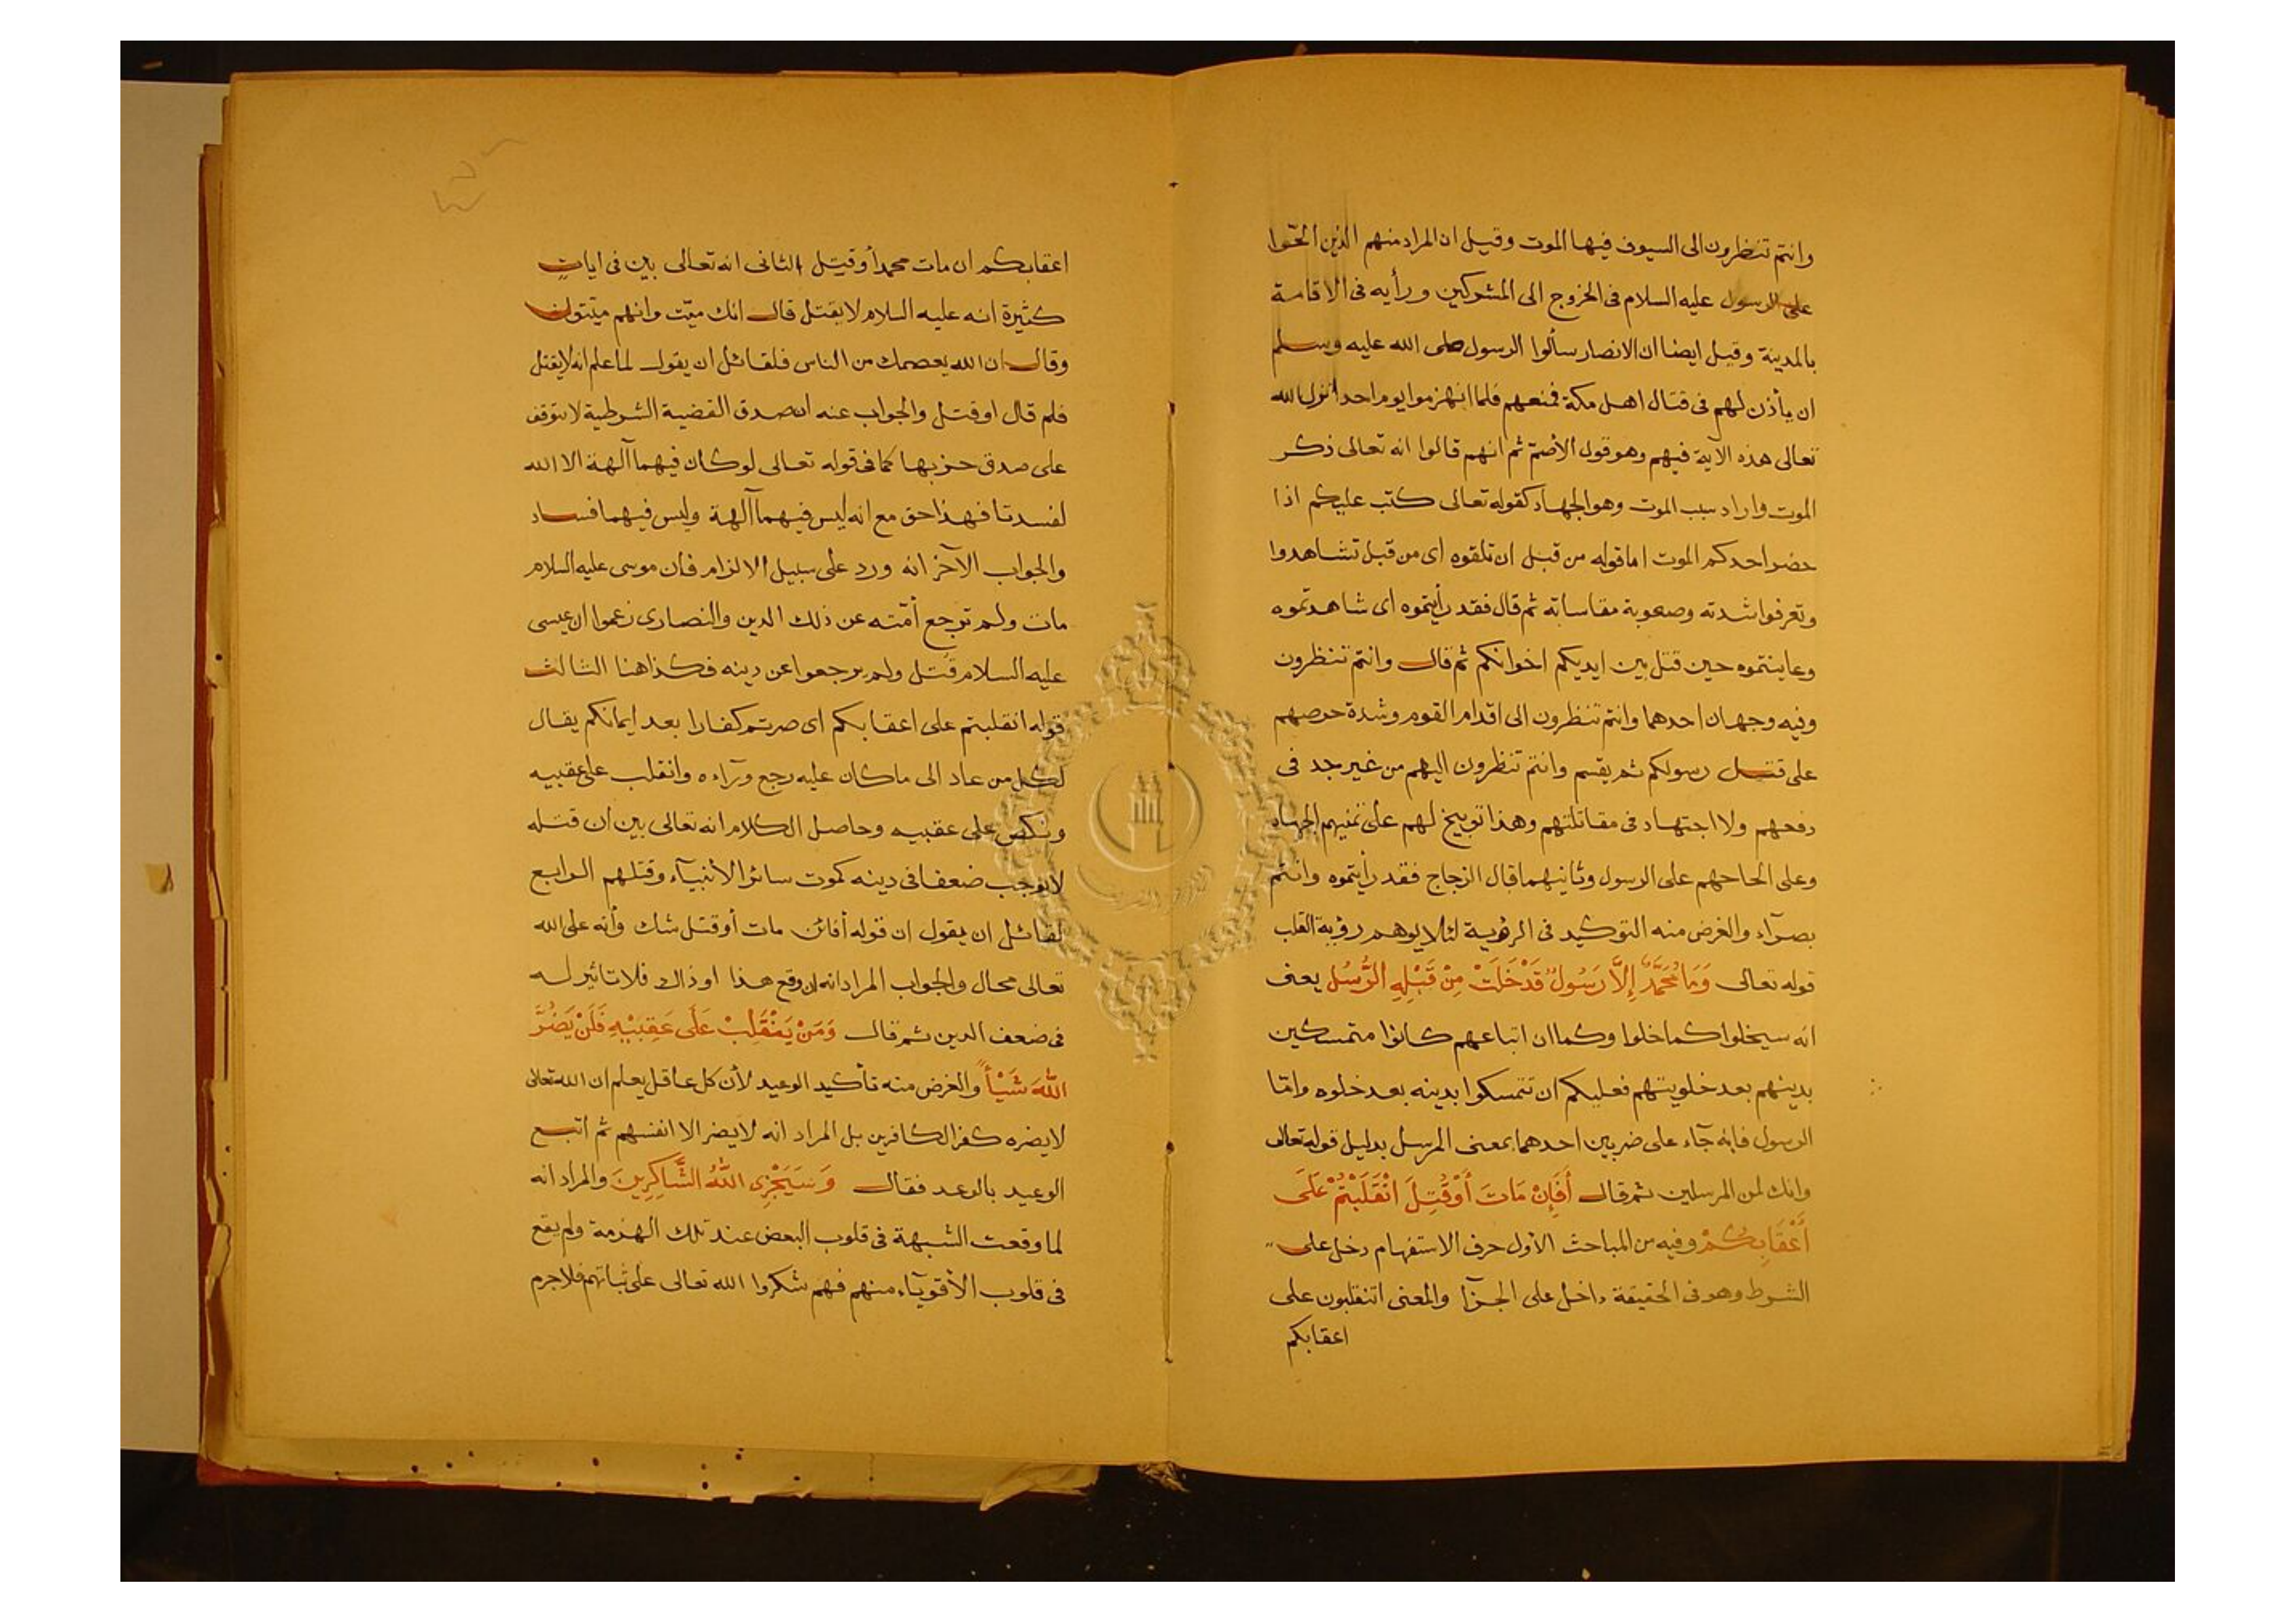 وانتم تنظرون الى السيوف فيها الموت وقيل ان المراد منهم الذين الحّوا
على الرسول عليه السلام فى الخروج الى المشركين ورأيه فى الاقامة
بالمدينة وقيل ايضا ان الانصار سألوا الرسول صلى الله عليه وسلم
ان يأذن لهم فى قتال اهل مكة فمنعهم فلما انهزموا يوم احد انزل الله
تعالى هذه الآية فيهم وهو قول الأصمّ ثم انهم قالوا انه تعالى ذكر
الموت واراد سبب الموت وهو الجهاد كقوله تعالى كتب عليكم اذا
حضر احدكم الموت اما قوله من قبل ان تلقوه اى من قبل تشاهدوا
وتعرفوا شدته وصعوبة مقاساته ثم قال فقد رأيتموه اى شاهدتموه
وعاينتموه حين قتل بين ايديكم اخوانكم ثم قال وانتم تنظرون
وفيه وجهان احدهما وانتم تنظرون الى اقدام القوم وشدة حرصهم
على قتل رسولكم ثم يقسم وانتم تنظرون اليهم من غير جد فى
دفعهم ولا اجتهاد فى مقاتلتهم وهذا توبيخ لهم على تمنيهم الجهاد
وعلى الحاحهم على الرسول وثانيهما قال الزجاج فقد رأيتموه وانتم
بصرآء والغرض منه التوكيد فى الرؤية لئلا يوهم رؤية القلب
قوله تعالى وَمَا مُحَمَّدٌ إِلَّا رَسُولٌ قَدْ خَلَتْ مِنْ قَبْلِهِ الرُّسُلُ يعنى
انه سيخلوا كما خلوا وكما ان اتباعهم كانوا متمسكين
بدينهم بعد خلويتهم فعليكم ان تتمسكوا بدينه بعد خلوه وامّا
الرسول فانه جآء على ضربين احدهما بمعنى المرسل بدليل قوله تعالى
وانك لمن المرسلين ثم قال أَفَإِنْ مَاتَ أَوْ قُتِلَ انْقَلَبْتُمْ عَلَى
أَعْقَابِكُمْ وفيه من المباحث الأول حرف الاستفهام دخل على
الشرط وهو فى الحقيقة داخل على الجزآ والمعنى اتنقلبون على
اعقابكم
اعقابكم ان مات محمد أو قتيل الثانى انه تعالى بين فى ايات
كثيرة انه عليه السلام لا يقتل قال انك ميّت وانهم ميّتون
وقال ان الله يعصمك من الناس فلقائل ان يقول لما علم انه لا يقتل
فلم قال او قتل والجواب عنه ان صدق القضية الشرطية لا يتوقف
على صدق حزبها كما فى قوله تعالى لو كان فيهما آلهة الا الله
لفسدتا فهذا حق مع انه ليس فيهما آلهة وليس فيهما فساد
والجواب الآخر انه ورد على سبيل الالزام فان موسى عليه السلام
مات ولم ترجع أمّته عن ذلك الدين والنصارى زعموا ان عيسى
عليه السلام قُتل ولم يرجعوا عن دينه فكذا هنا الثالث
قوله انقلبتم على اعقابكم اى صرتم كفارا بعد ايمانكم يقال
لكل من عاد الى ما كان عليه رجع ورآءه وانقلب على عقبيه
ونكص على عقبيه وحاصل الكلام انه تعالى بين ان قتله
لا يوجب ضعفا فى دينه كموت سائر الأنبيآء وقتلهم الرابع
لقائل ان يقول ان قوله أفائن مات أو قتل شك وأنه على الله
تعالى محال والجواب المراد انه ان وقع هذا او ذاك فلا تاثير له
فى ضعف الدين ثم قال وَمَنْ يَنْقَلِبْ عَلَى عَقِبَيْهِ فَلَنْ يَضُرَّ
اللهَ شَيْأً والغرض منه تأكيد الوعيد لأن كل عاقل يعلم ان الله تعالى
لا يضره كفر الكافرين بل المراد انه لا يضر الا انفسهم ثم اتبع
الوعيد بالوعد فقال وَسَيَجْزِى اللهُ الشَّاكِرِينَ والمراد انه
لما وقعت الشبهة فى قلوب البعض عند تلك الهزمة ولم يقع
فى قلوب الأقويآء منهم فهم شكروا الله تعالى على ثباتهم فلا جرم